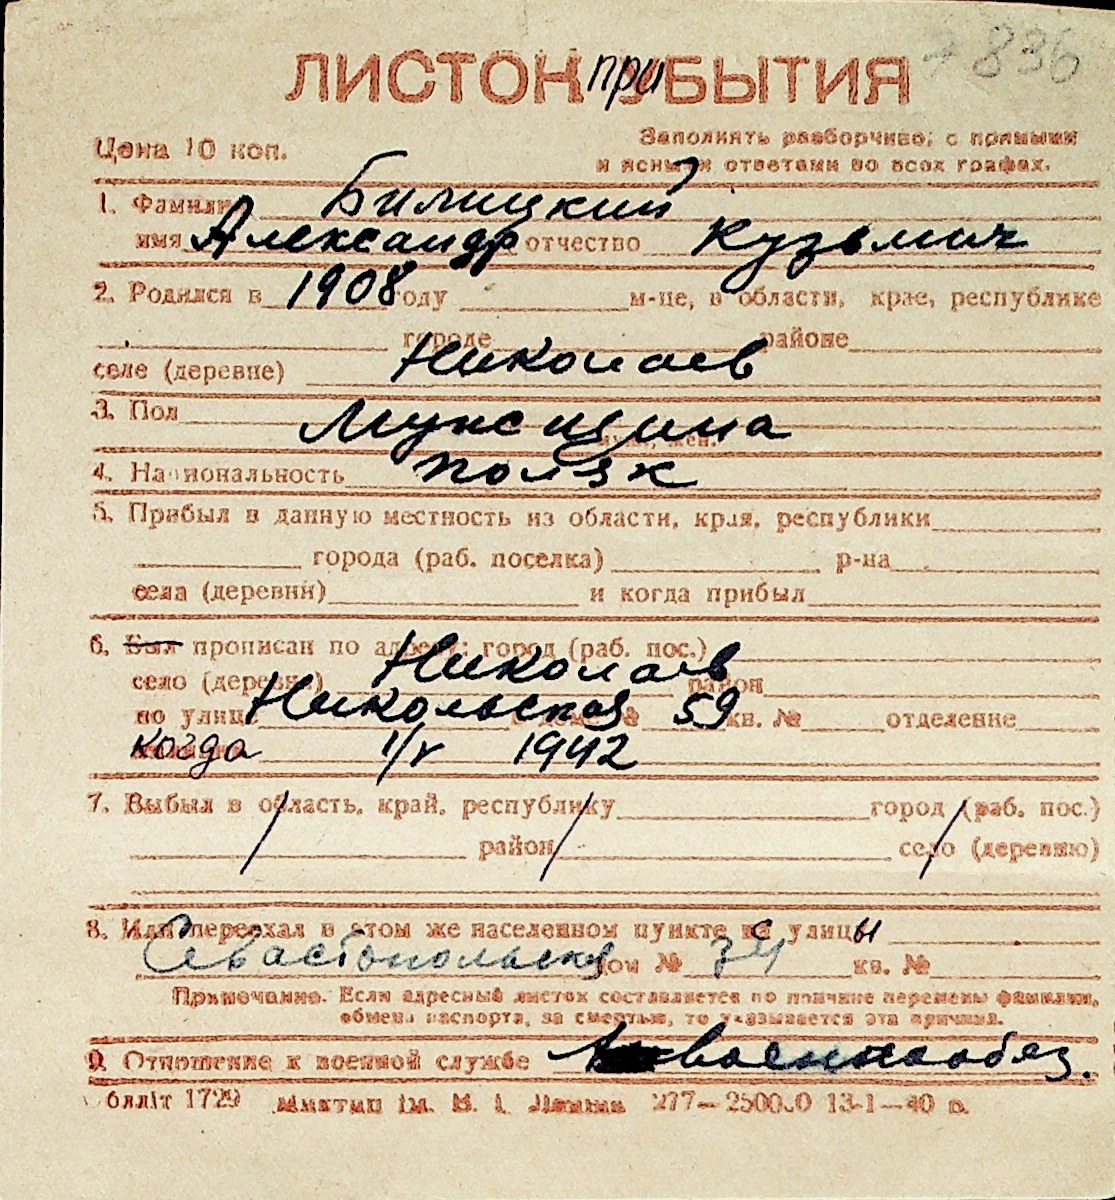 7836
ЛИСТОК при УБЫТИЯ
Цена 10 коп.
Заполнять разборчиво, с прямыми
и ясными ответами во всех графах.
1. Фамилия Билицкий
имя Александр отчество Кузьмич
2. Родился в 1908 году м-це, в области, крае, республике
городе районе
селе (деревне) Николаев
3. Пол Мужсщина
муж., жен.
4. Национальность поляк
5. Прибыл в данную местность из области, края, республики
города (раб. поселка) р-на
села (деревни) и когда прибыл
6. Был прописан по адресу: город (раб. пос.)
село (деревня) Николаев район
по улице Никольская 59 кв. № отделение
когда 1/V 1942
7. Выбыл в область, край, республику город (раб. пос.)
район село (деревню)
8. Или переехал в этом же населенном пункте с улицы
Севастопольская дом № 34 кв. №
Примечание. Если адресный листок составляется по причине перемены фамилии,
обмена паспорта, за смертью, то указывается эта причина.
9. Отношение к военной службе военнообяз.
Облліт 1729 277—2500.0 13-1—40 р.